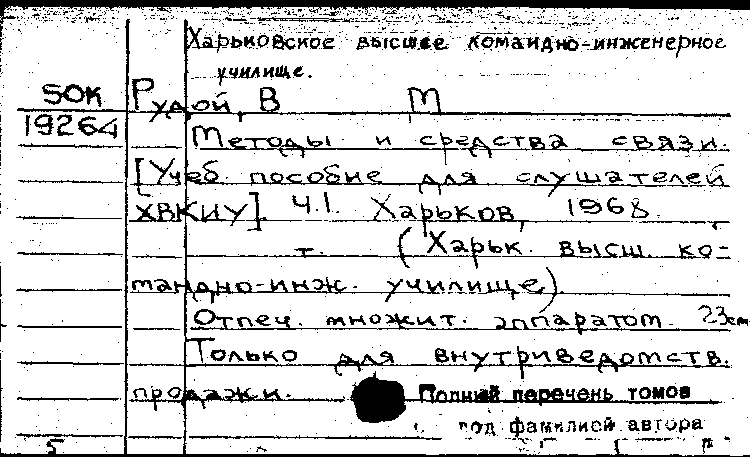 Харьковское высшее командно-инженерное
училище.
50К Рудой, В М
19264 Методы и средства связи.
[Учеб. пособие для слушателей
ХВКИУ]. Ч.1. Харьков, 1968.
т. (Харьк. высш. ко-
мандно-инж. училище).
Отпеч. множит. аппаратом. 23см
Только для внутриведомств.
продажи. Полный перечень томов
под фамилией автора